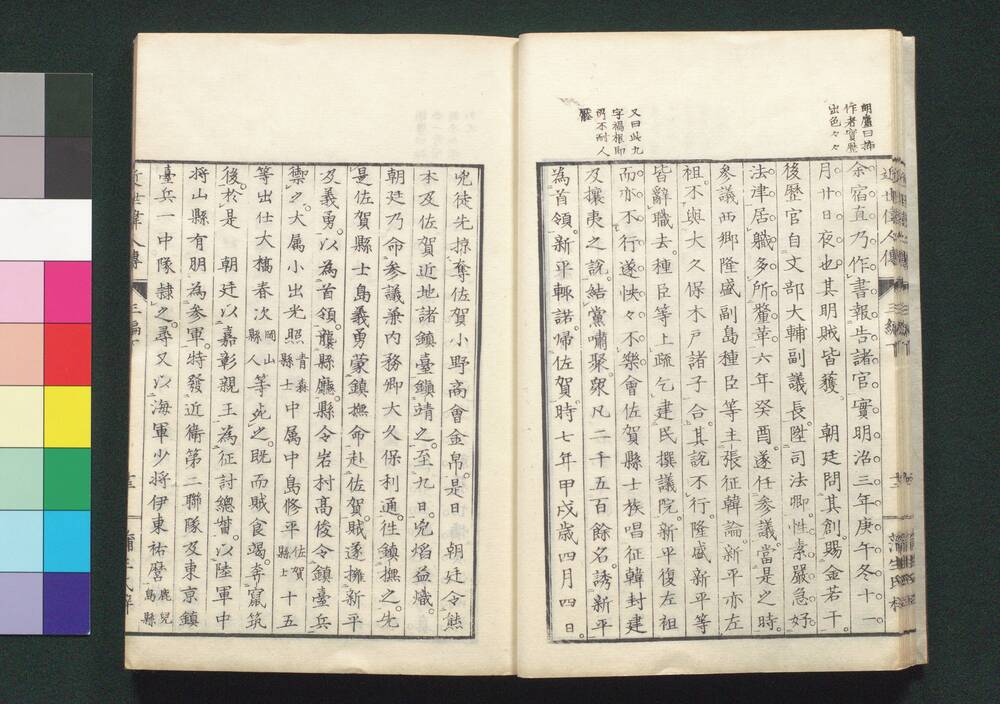 朗廬曰揷
作者實歷
出色々々
又曰此九
字禍根即
所不耐人
近世偉人傳
余宿直乃作書報告諸官實明治三年庚午冬十一
月廿日夜也其明賊皆獲　朝廷問其創賜金若干
後歷官自文部大輔副議長陞司法卿性素嚴急好
法律居職多所釐革六年癸酉遂任參議當是之時
參議西鄕隆盛副島種臣等主張征韓論新平亦左
袒不與大久保木戸諸子合其說不行隆盛新平等
皆辭職去種臣等上疏乞建民撰議院新平復左袒
而亦不行遂怏々不樂會佐賀縣士族唱征韓封建
及攘夷之說結黨嘯聚衆凡二千五百餘名誘新平
為首領新平輙諾歸佐賀時七年甲戌歲四月四日
兇徒先掠奪佐賀小野高會金帛是日　朝廷令熊
本及佐賀近地諸鎭臺鎭靖之至九日兇焰益熾
朝廷乃命參議兼內務卿大久保利通徃鎭撫之先
是佐賀縣士島義勇蒙鎭撫命赴佐賀賊遂擁新平
及義勇以為首領襲縣廳縣令岩村高俊令鎭臺兵
禦之大属小出光照青森縣士中属中島修平佐賀縣士十五
等出仕大槗春次岡山縣人等死之旣而賊食竭奔竄筑
後於是　朝廷以嘉彰親王為征討總督以陸軍中
將山縣有朋為參軍特發近衛第二聯隊及東京鎭
臺兵一中隊隷之尋又以海軍少將伊東祐麿鹿兒島縣
近世偉人傳
三編